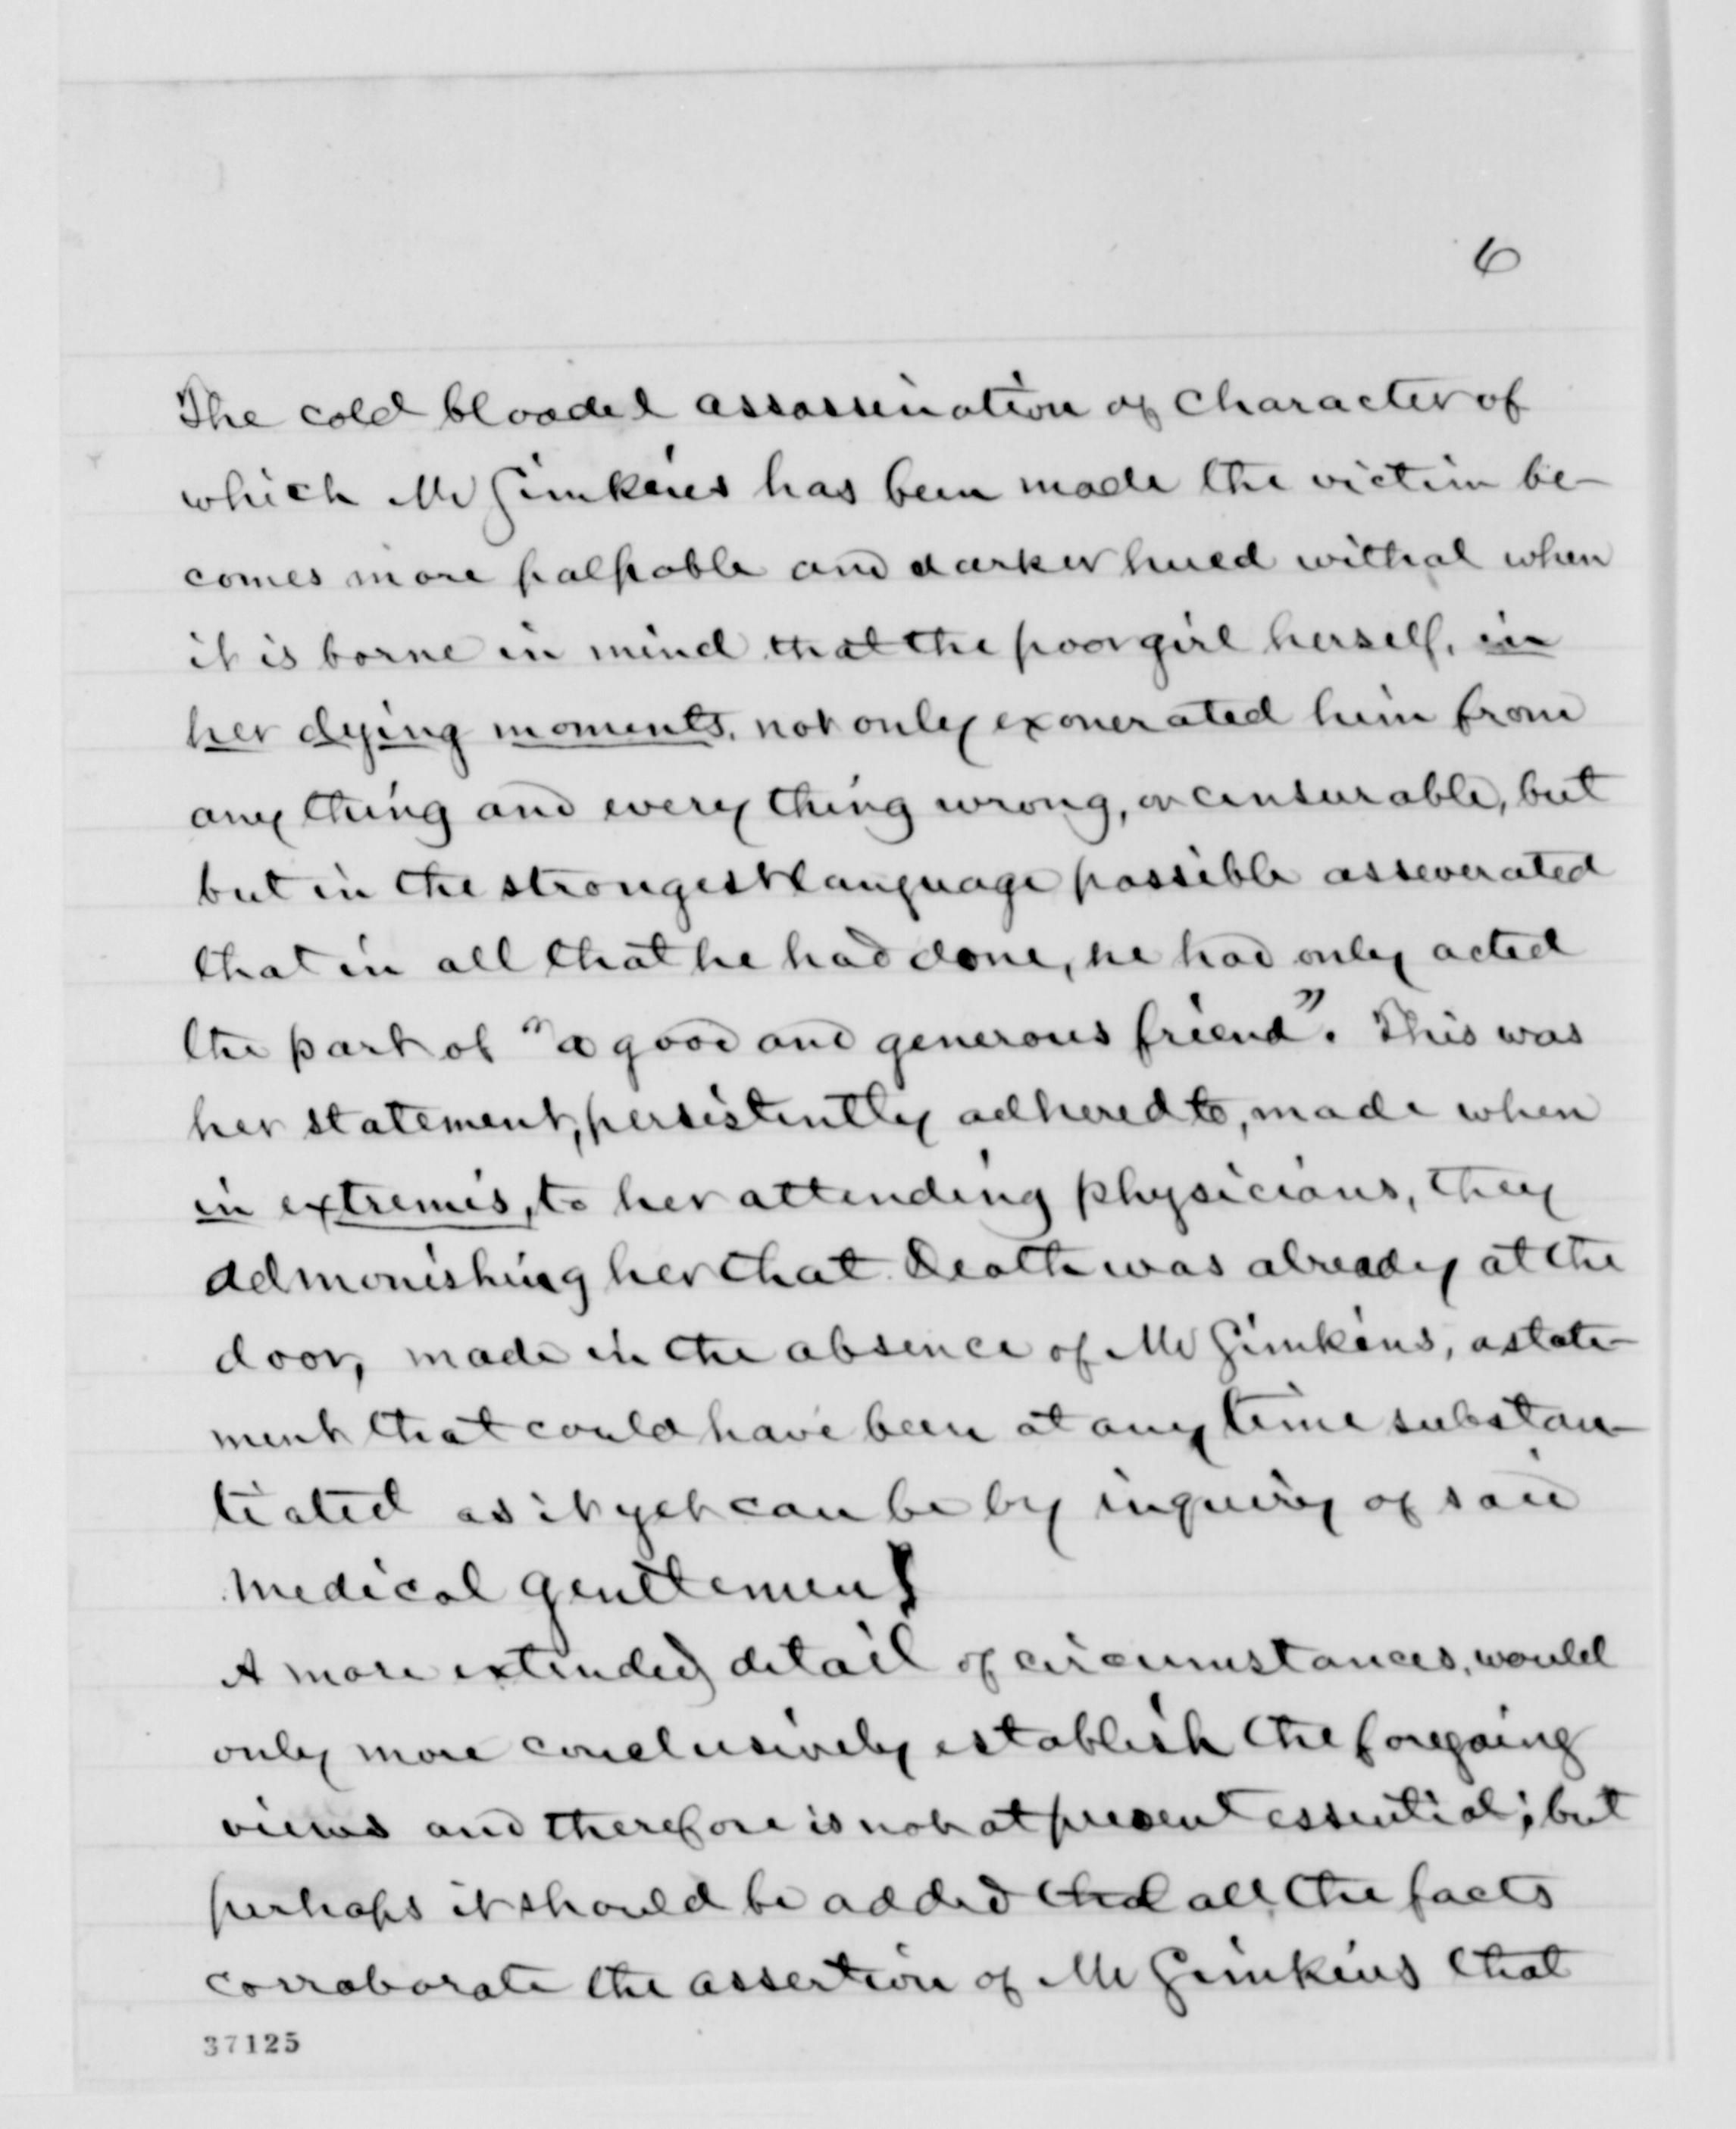 6
The cold blooded assassination of character of
which Mr Simkins has been made the victim be-
comes more palpable and darker hued withal when
it is borne in mind that the poor girl herself, in
her dying moments, not only exonerated him from
any thing and every thing wrong, or censurable, but
but in the strongest language possible asseverated
that in all that he had done, he had only acted
the part of "a good and generous friend". This was
her statement, persistently adhered to, made when
in extremis, to her attending physicians, they
admonishing her that Death was already at the
door, made in the absence of Mr Simkins, a state-
ment that could have been at any time substan-
tiated as it yet can be by inquiry of said
medical gentlemen!
A more extended detail of circumstances, would
only more conclusively establish the foregoing
views and therefore is not at present essential; but
perhaps it should be added that all the facts
corroborate the assertion of Mr Simkins that
37125